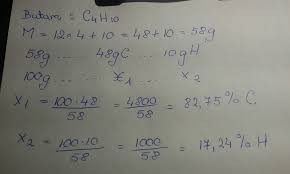 Butan: C4H10
M = 12·4 + 10 = 48 + 10 = 58g
58g ..... 48gC .... 10gH
100g ..... x1 .... x2
x1 = 100·48/58 = 4800/58 = 82,75% C
x2 = 100·10/58 = 1000/58 = 17,24% H